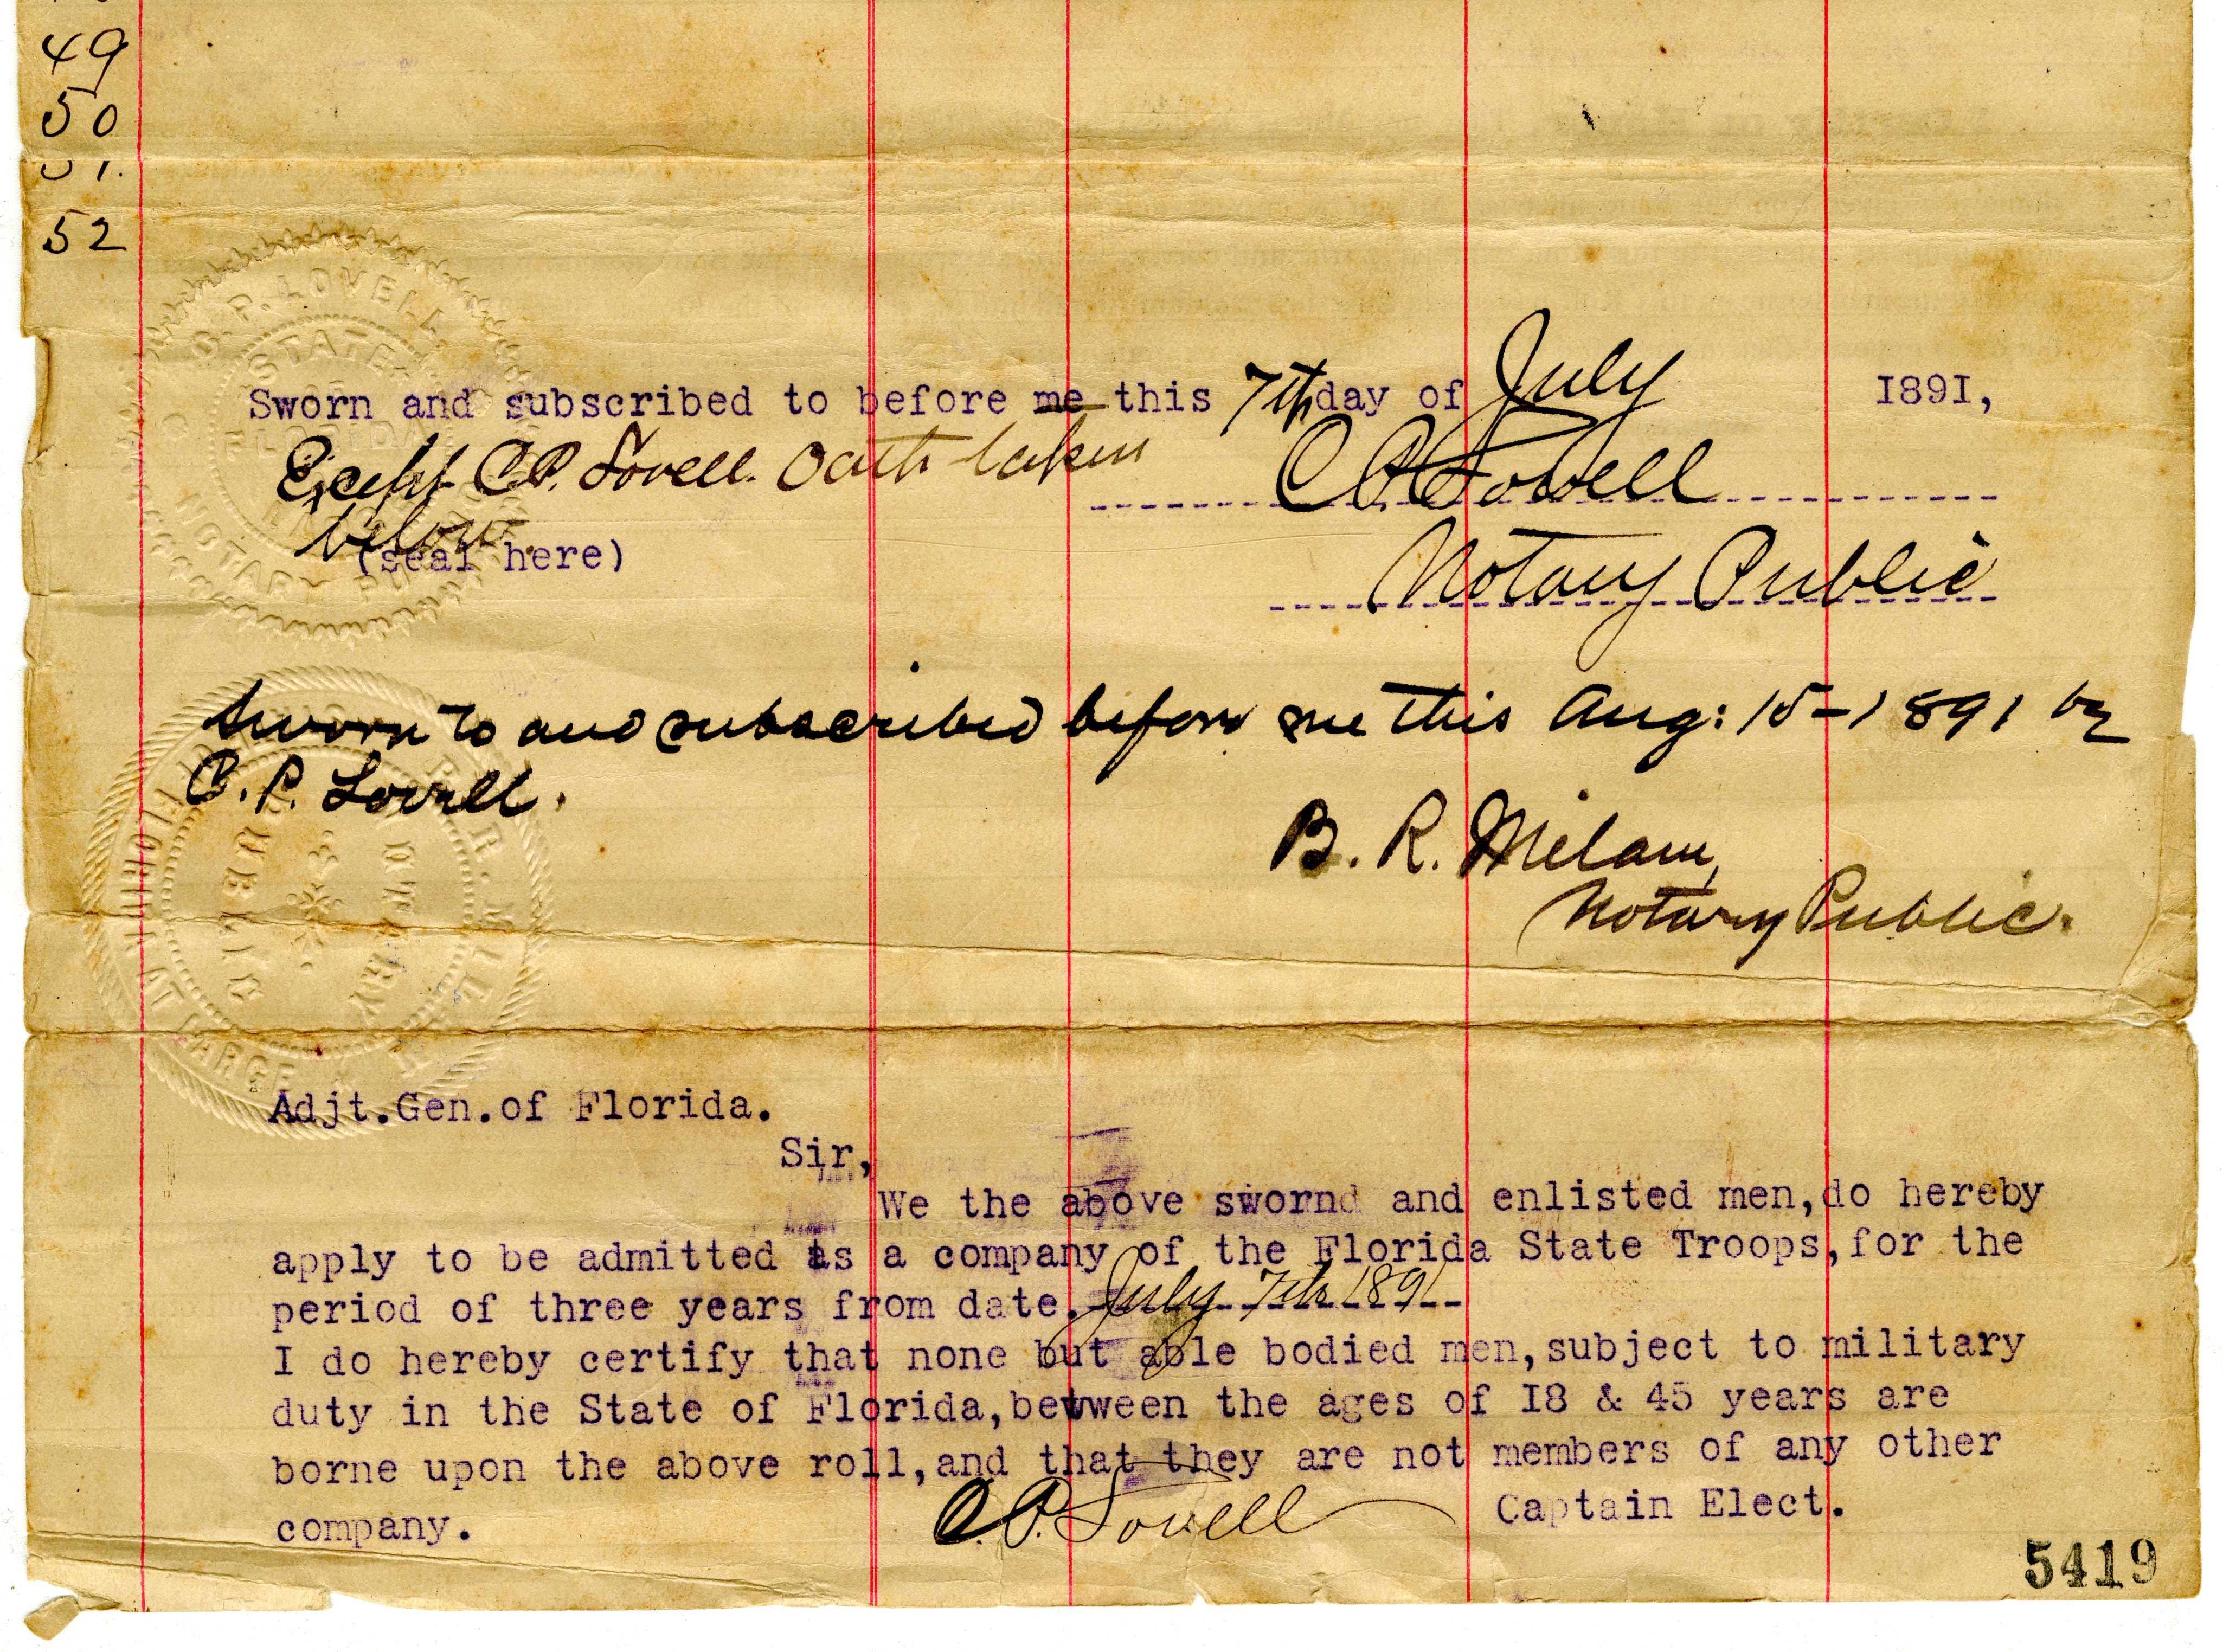 49
50
51.
52
C. P. LOVELL
STATE
OF
FLORIDA
NOTARY PUBLIC
Sworn and subscribed to before me this 7th day of July 1891,
Except C.P. Lovell. Oath taken
below.
C P Lovell
(seal here)
Notary Public
Sworn to and subscribed before me this Aug: 15-1891 by
C. P. Lovell.
B. R. Milam,
Notary Public.
NOTARY
AT LARGE
Adjt.Gen.of Florida.
Sir,
We the above swornd and enlisted men,do hereby
apply to be admitted as a company of the Florida State Troops,for the
period of three years from date. July 7th 1891
I do hereby certify that none but able bodied men,subject to military
duty in the State of Florida,between the ages of I8 & 45 years are
borne upon the above roll,and that they are not members of any other
company.
C.P. Lovell Captain Elect.
5419